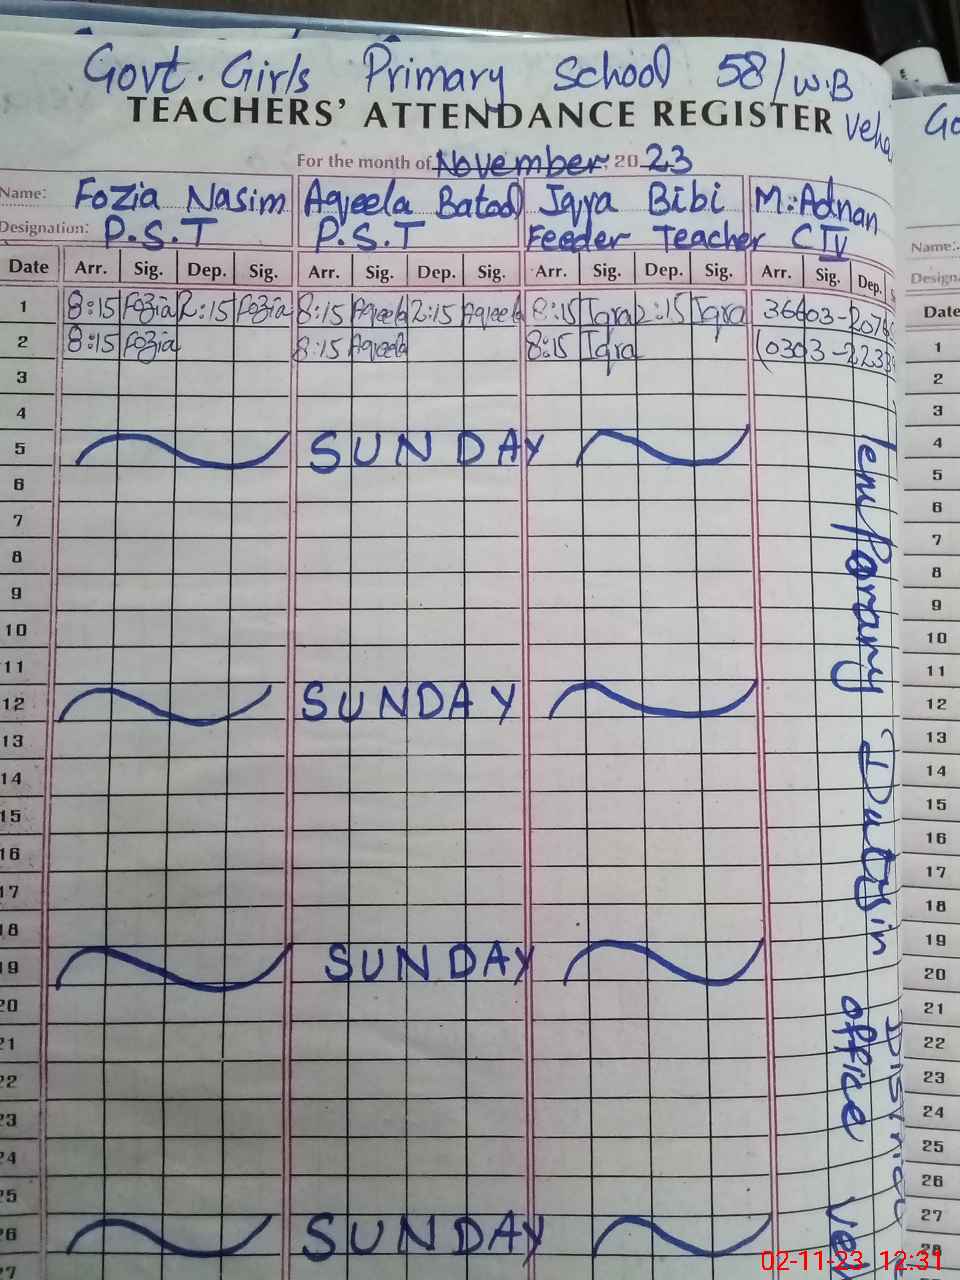 Govt. Girls Primary School 58/W.B
TEACHERS' ATTENDANCE REGISTER
For the month of November, 20 23
Name: Fozia Nasim Aqeela Batool Iqra Bibi M. Adnan
Designation: P.S.T P.S.T Feeder Teacher C IV
Date Arr. Sig. Dep. Sig. Arr. Sig. Dep. Sig. Arr. Sig. Dep. Sig. Arr. Sig. Dep.
1 8:15 Fozia 2:15 Fozia 8:15 Aqeela 2:15 Aqeela 8:15 Iqra 2:15 Iqra
2 8:15 Fozia 8:15 Aqeela 8:15 Iqra
3
4
5 SUNDAY
6
7
8
9
10
11
12 SUNDAY
13
14
15
16
17
18
19 SUNDAY
20
21
22
23
24
25
26 SUNDAY
27
Temporary Duty in
office
Name:
Date
1
2
3
4
5
6
7
8
9
10
11
12
13
14
15
16
17
18
19
20
21
22
23
24
25
26
27
28
02-11-23 12:31